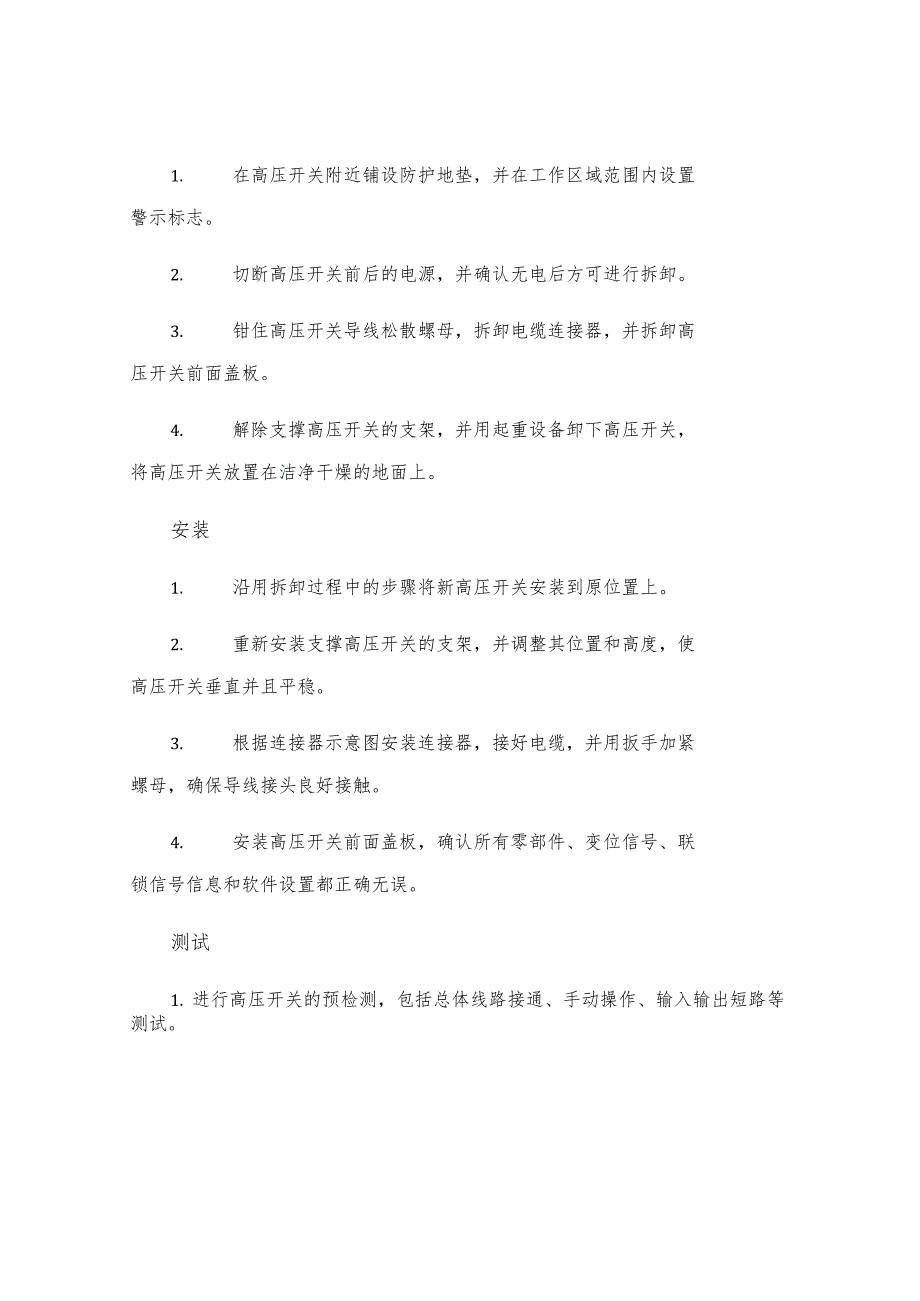 1. 在高压开关附近铺设防护地垫，并在工作区域范围内设置
警示标志。
2. 切断高压开关前后的电源，并确认无电后方可进行拆卸。
3. 钳住高压开关导线松散螺母，拆卸电缆连接器，并拆卸高
压开关前面盖板。
4. 解除支撑高压开关的支架，并用起重设备卸下高压开关，
将高压开关放置在洁净干燥的地面上。
安装
1. 沿用拆卸过程中的步骤将新高压开关安装到原位置上。
2. 重新安装支撑高压开关的支架，并调整其位置和高度，使
高压开关垂直并且平稳。
3. 根据连接器示意图安装连接器，接好电缆，并用扳手加紧
螺母，确保导线接头良好接触。
4. 安装高压开关前面盖板，确认所有零部件、变位信号、联
锁信号信息和软件设置都正确无误。
测试
1. 进行高压开关的预检测，包括总体线路接通、手动操作、输入输出短路等
测试。